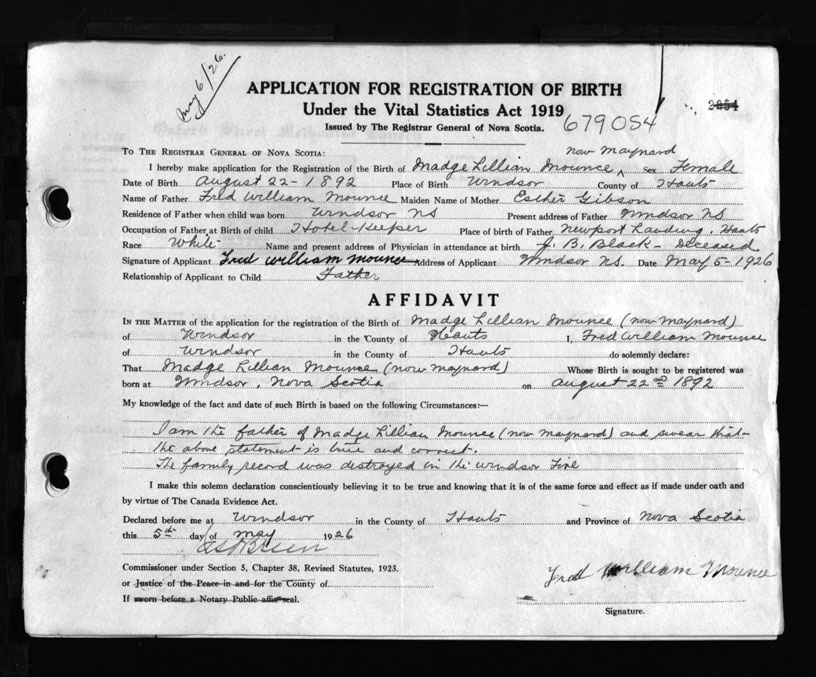 May 6/26.
APPLICATION FOR REGISTRATION OF BIRTH
Under the Vital Statistics Act 1919
Issued by The Registrar General of Nova Scotia.
679054
2654
now Maynard
To THE REGISTRAR GENERAL OF NOVA SCOTIA:
I hereby make application for the Registration of the Birth of Madge Lillian Mounce ^ Sex Female
Date of Birth August 22 - 1892 Place of Birth Windsor County of Hants
Name of Father Fred William Mounce Maiden Name of Mother Esther Gibson
Residence of Father when child was born Windsor NS Present address of Father Windsor NS
Occupation of Father at Birth of child Hotel-Keeper Place of birth of Father Newport Landing, Hants
Race White Name and present address of Physician in attendance at birth J. B. Black - Deceased
Signature of Applicant Fred William Mounce Address of Applicant Windsor NS. Date May 5 - 1926
Relationship of Applicant to Child Father
AFFIDAVIT
IN THE MATTER of the application for the registration of the Birth of Madge Lillian Mounce (now Maynard)
of Windsor in the County of Hants I, Fred William Mounce
of Windsor in the County of Hants do solemnly declare:
That Madge Lillian Mounce (now Maynard) Whose Birth is sought to be registered was
born at Windsor, Nova Scotia on August 22nd 1892
My knowledge of the fact and date of such Birth is based on the following Circumstances:—
I am the father of Madge Lillian Mounce (now Maynard) and swear that
the above statement is true and correct.
The family record was destroyed in the Windsor Fire
I make this solemn declaration conscientiously believing it to be true and knowing that it is of the same force and effect as if made under oath and
by virtue of The Canada Evidence Act.
Declared before me at Windsor in the County of Hants and Province of Nova Scotia
this 5th day of May 1926
Commissioner under Section 5, Chapter 38, Revised Statutes, 1923.
or Justice of the Peace in and for the County of
If sworn before a Notary Public affix seal.
Fred William Mounce
Signature.